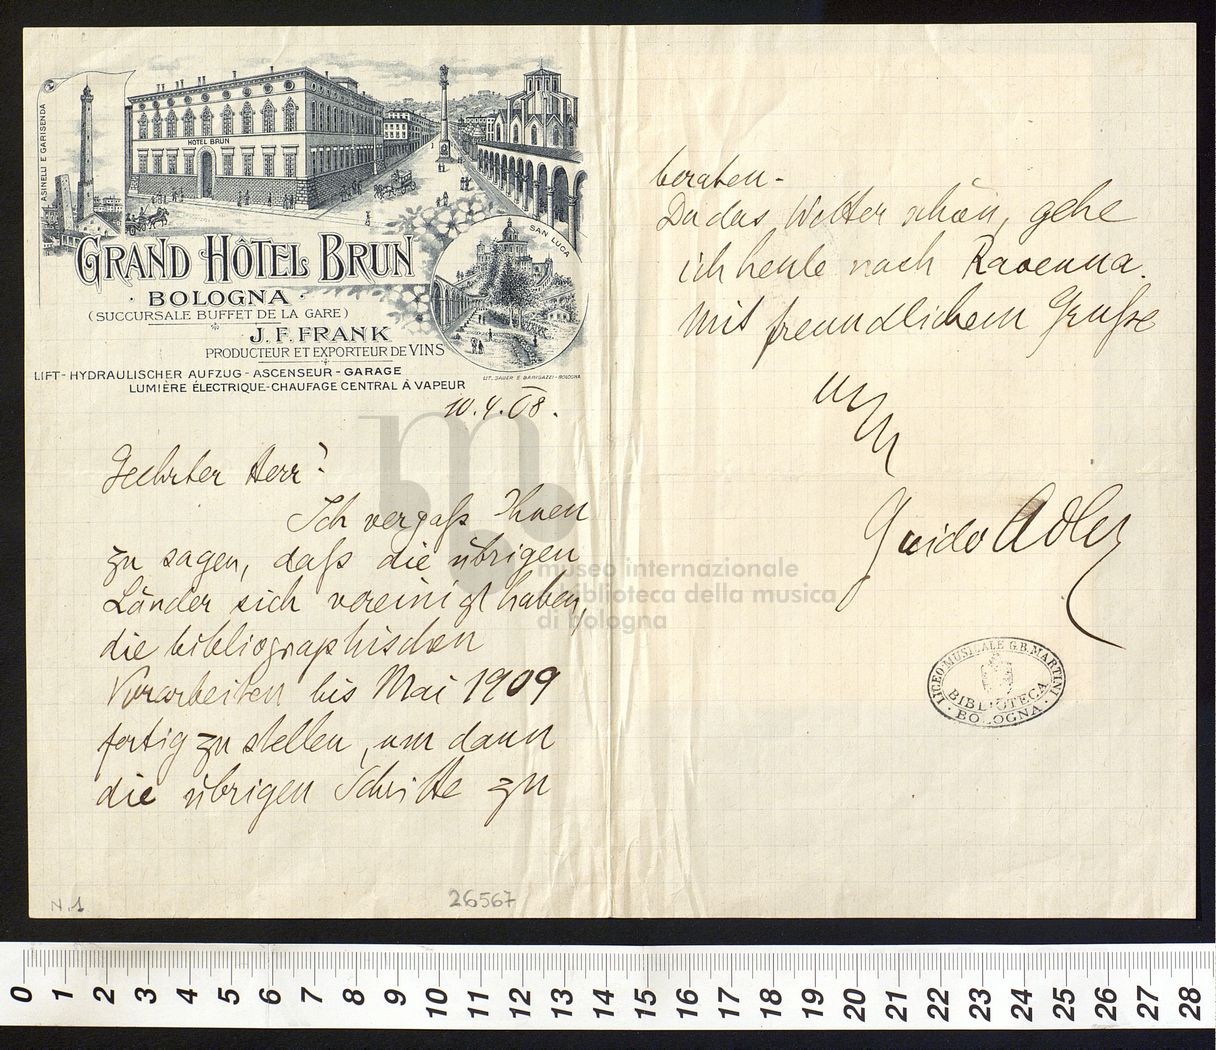 ASINELLI E GARISENDA
HOTEL BRUN
SAN LUCA
GRAND HÔTEL BRUN
· BOLOGNA ·
(SUCCURSALE BUFFET DE LA GARE)
J. F. FRANK
PRODUCTEUR ET EXPORTEUR DE VINS
LIFT - HYDRAULISCHER AUFZUG - ASCENSEUR - GARAGE
LUMIÈRE ÉLECTRIQUE - CHAUFAGE CENTRAL À VAPEUR
LIT. SAUER E BARIGAZZI - BOLOGNA
10.4.08.
Geehrter Herr!
Ich vergaß Ihnen
zu sagen, daß die übrigen
Länder sich vereinigt haben,
die bibliographischen
Vorarbeiten bis Mai 1909
fertig zu stellen, um dann
die übrigen Schritte zu
N. 1
26567
beraten -
Da das Wetter schön, gehe
ich heute nach Ravenna.
Mit freundlichem Gruße
Guido Adler
LICEO MUSICALE G.B. MARTINI
BIBLIOTECA
· BOLOGNA ·
m
museo internazionale
e biblioteca della musica
di bologna
0 1 2 3 4 5 6 7 8 9 10 11 12 13 14 15 16 17 18 19 20 21 22 23 24 25 26 27 28